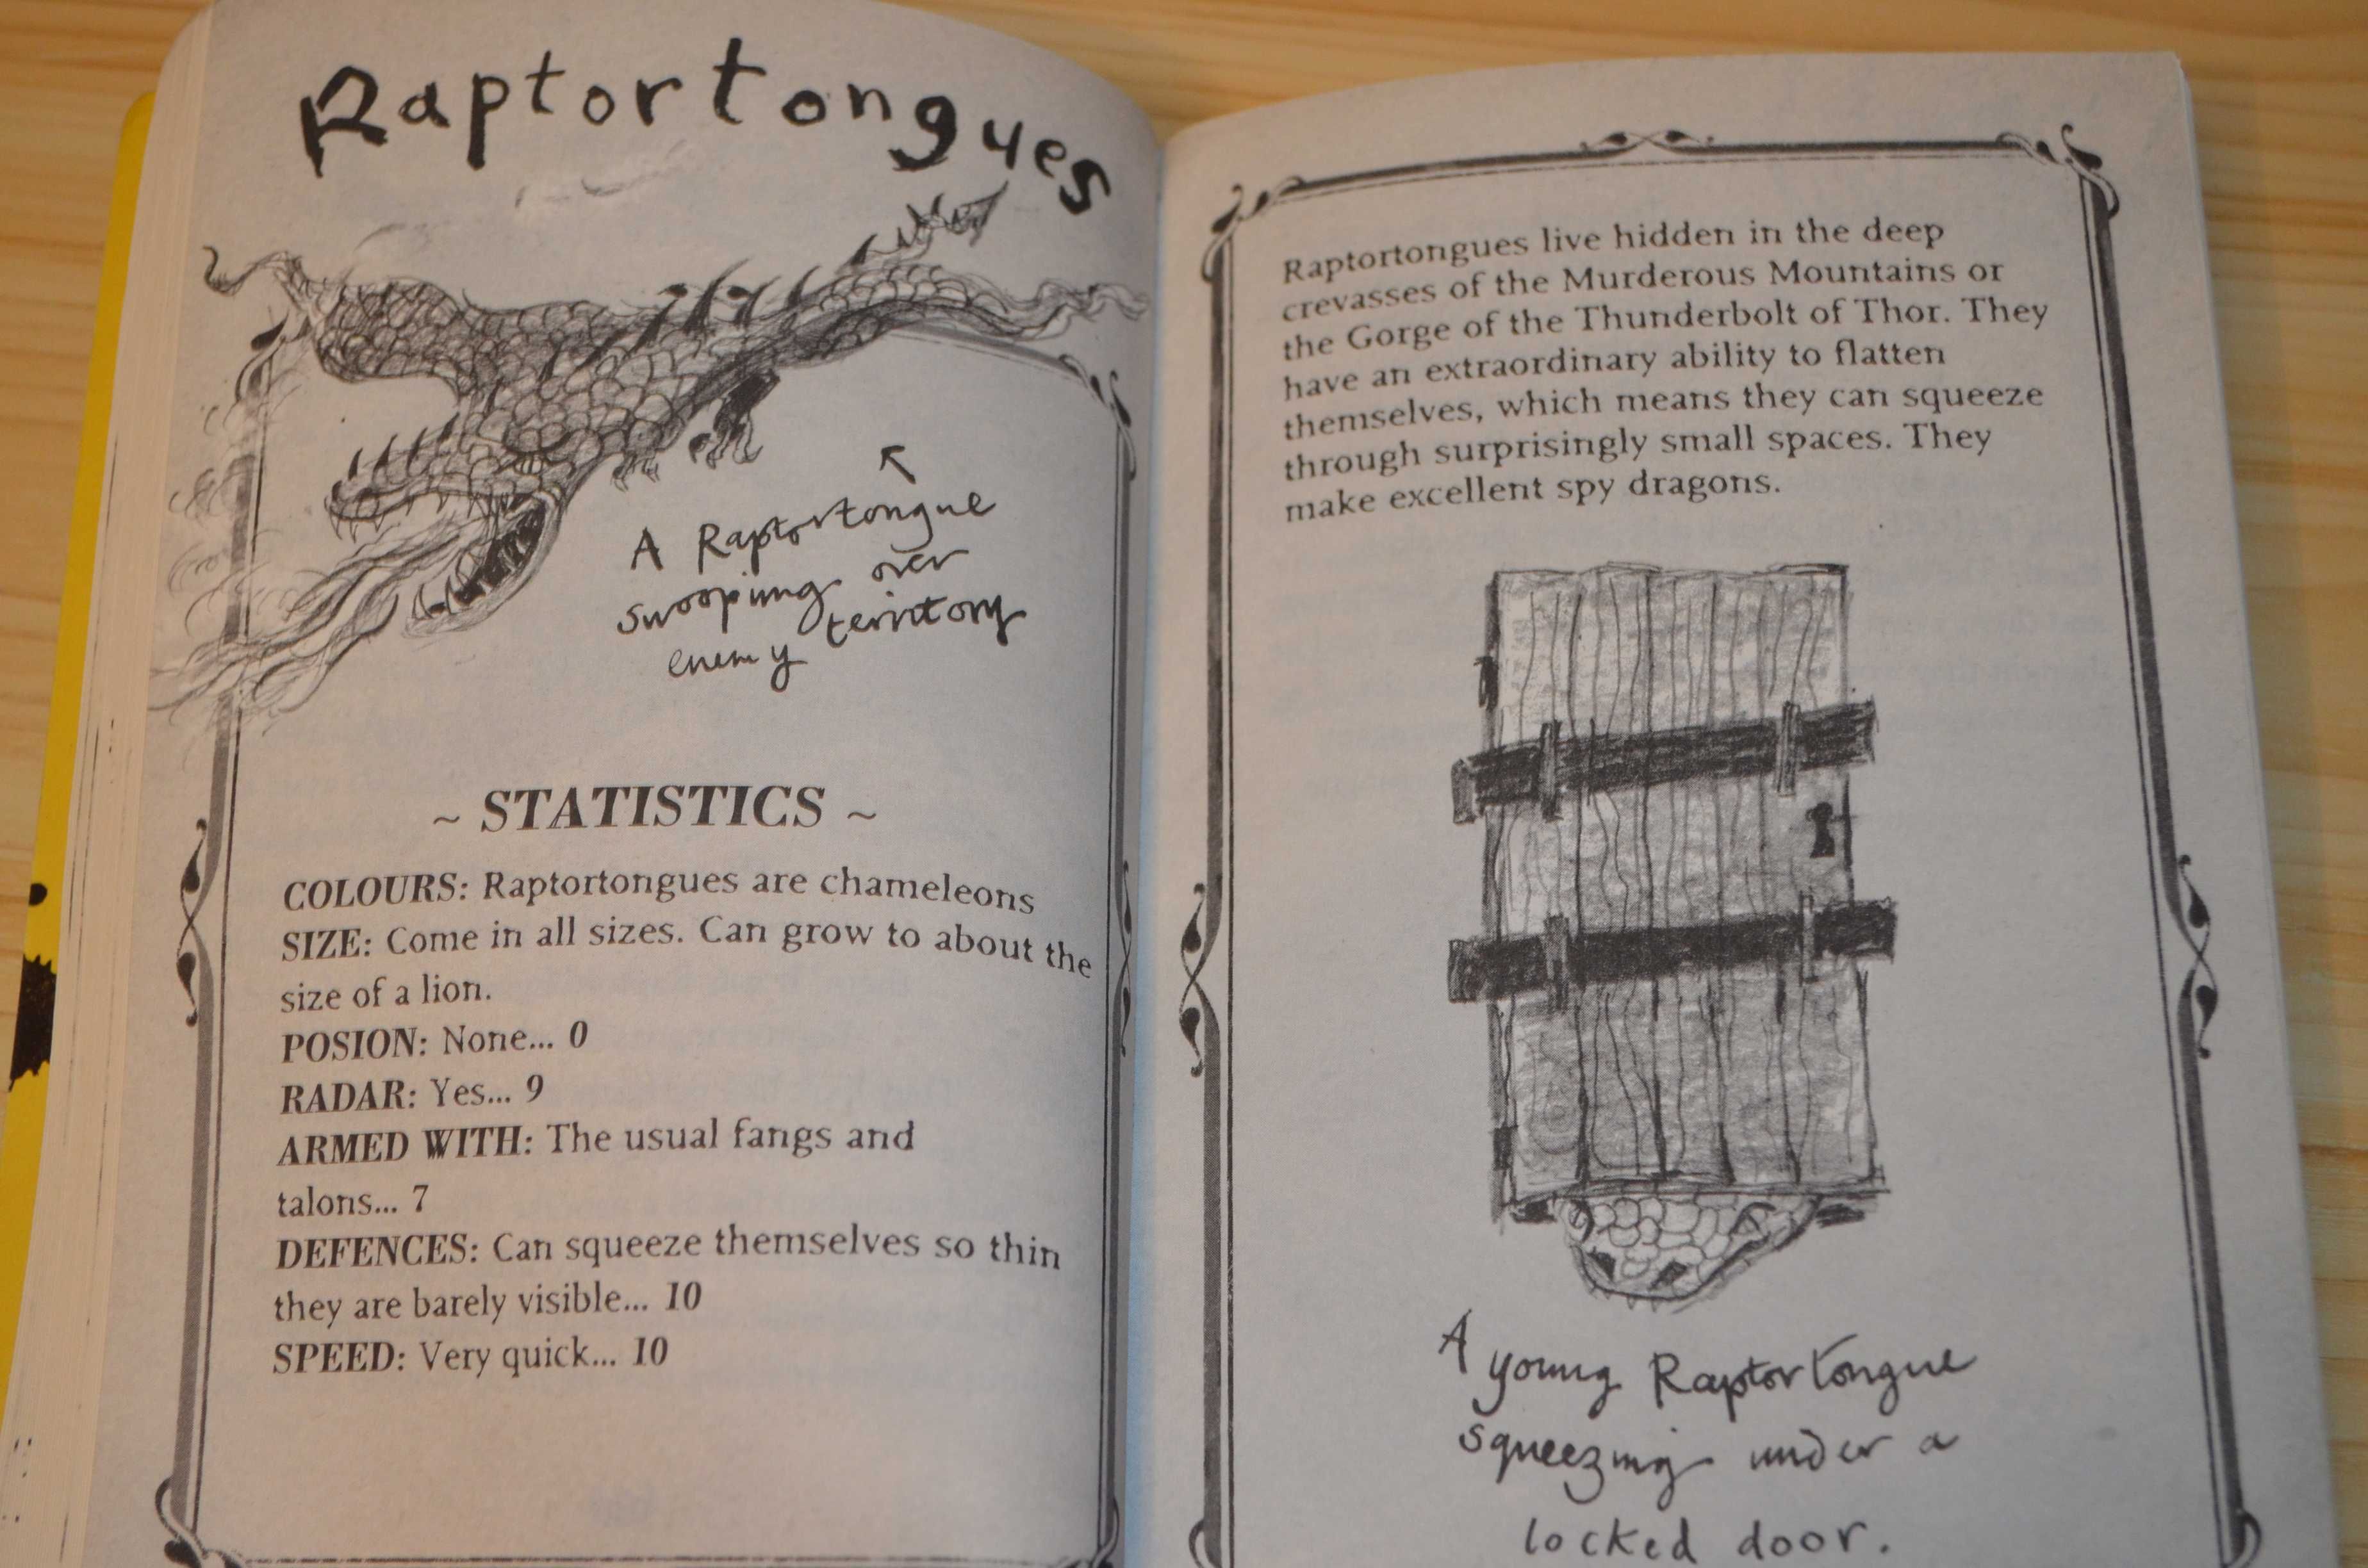 Raptortongues
A Raptortongue
swooping over
enemy territory
~ STATISTICS ~
COLOURS: Raptortongues are chameleons
SIZE: Come in all sizes. Can grow to about the
size of a lion.
POSION: None... 0
RADAR: Yes... 9
ARMED WITH: The usual fangs and
talons... 7
DEFENCES: Can squeeze themselves so thin
they are barely visible... 10
SPEED: Very quick... 10
Raptortongues live hidden in the deep
crevasses of the Murderous Mountains or
the Gorge of the Thunderbolt of Thor. They
have an extraordinary ability to flatten
themselves, which means they can squeeze
through surprisingly small spaces. They
make excellent spy dragons.
A young Raptortongue
squeezing under a
locked door.